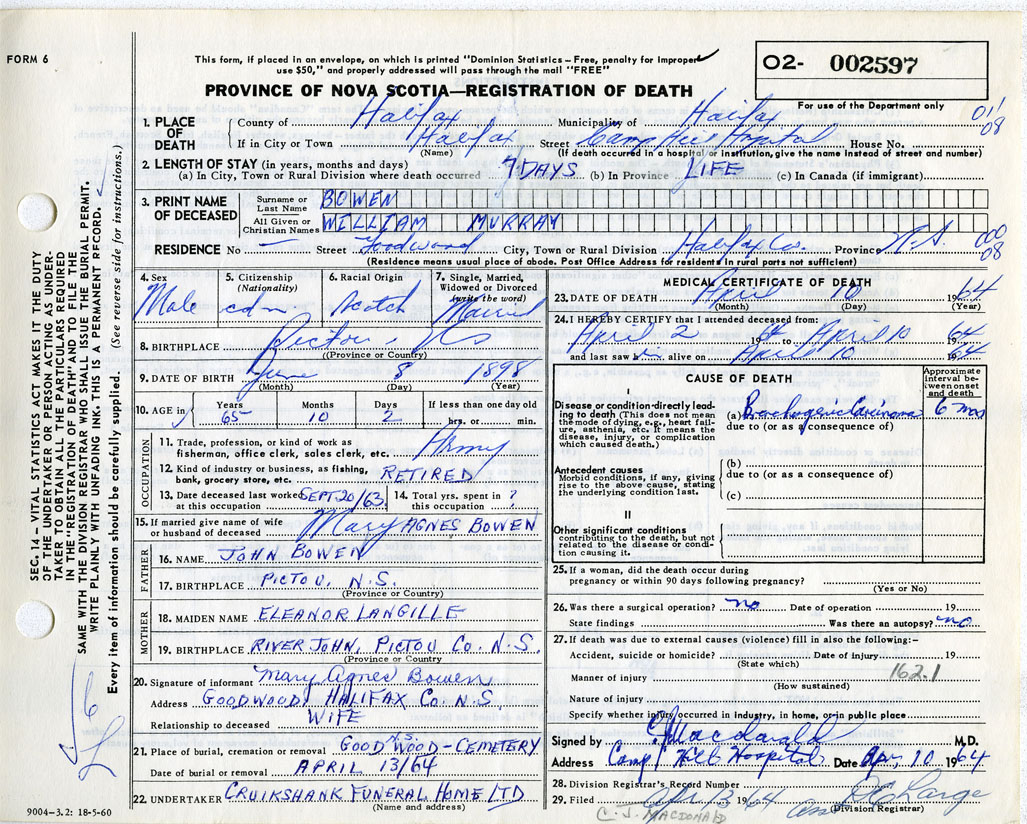 FORM 6
This form, if placed in an envelope, on which is printed "Dominion Statistics—Free, penalty for improper
use $50," and properly addressed will pass through the mail "FREE"
PROVINCE OF NOVA SCOTIA—REGISTRATION OF DEATH
02- 002597
For use of the Department only
1. PLACE OF DEATH
County of Halifax Municipality of Halifax 01'
If in City or Town Halifax Street Camp Hill Hospital House No. 08
(Name) (If death occurred in a hospital or institution, give the name instead of street and number)
2. LENGTH OF STAY (in years, months and days)
(a) In City, Town or Rural Division where death occurred 9 DAYS (b) In Province LIFE (c) In Canada (if immigrant)
3. PRINT NAME OF DECEASED
Surname or Last Name BOWEN
All Given or Christian Names WILLIAM MURRAY
RESIDENCE No. — Street Goodwood City, Town or Rural Division Halifax Co. Province N.S. 000
08
(Residence means usual place of abode. Post Office Address for residents in rural parts not sufficient)
4. Sex Male
5. Citizenship (Nationality) cdn
6. Racial Origin Scotch
7. Single, Married, Widowed or Divorced (write the word) Married
8. BIRTHPLACE Pictou, NS
(Province or Country)
9. DATE OF BIRTH June 8 1898
(Month) (Day) (Year)
10. AGE in Years 65 Months 10 Days 2 If less than one day old hrs. or min.
OCCUPATION
11. Trade, profession, or kind of work as
fisherman, office clerk, sales clerk, etc. Army
12. Kind of industry or business, as fishing,
bank, grocery store, etc. RETIRED
13. Date deceased last worked at this occupation SEPT 20/63
14. Total yrs. spent in this occupation ?
15. If married give name of wife
or husband of deceased Mary AGNES BOWEN
FATHER
16. NAME JOHN BOWEN
17. BIRTHPLACE PICTOU, N.S.
(Province or Country)
MOTHER
18. MAIDEN NAME ELEANOR LANGILLE
19. BIRTHPLACE RIVER JOHN, PICTOU CO. N.S.
(Province or Country
20. Signature of informant Mary Agnes Bowen
Address GOODWOOD, HALIFAX CO. N.S.
Relationship to deceased WIFE
21. Place of burial, cremation or removal GOODWOOD - CEMETERY N.S.
Date of burial or removal APRIL 13/64
22. UNDERTAKER CRUIKSHANK FUNERAL HOME LTD
(Name and address)
9004-3.2: 18-5-60
MEDICAL CERTIFICATE OF DEATH
23. DATE OF DEATH April 10 1964
(Month) (Day) (Year)
24. I HEREBY CERTIFY that I attended deceased from:
April 2 1964 to April 10 1964
and last saw him alive on April 10 1964
CAUSE OF DEATH
Approximate interval between onset and death
I
Disease or condition directly leading to death (This does not mean the mode of dying, e.g., heart failure, asthenia, etc. It means the disease, injury, or complication which caused death.)
(a) Bronchogenic Carcinoma 6 mos
due to (or as a consequence of)
Antecedent causes
Morbid conditions, if any, giving rise to the above cause, stating the underlying condition last.
(b)
due to (or as a consequence of)
(c)
II
Other significant conditions
contributing to the death, but not related to the disease or condition causing it.
25. If a woman, did the death occur during
pregnancy or within 90 days following pregnancy?
(Yes or No)
26. Was there a surgical operation? no Date of operation 19
State findings Was there an autopsy? no
27. If death was due to external causes (violence) fill in also the following:—
Accident, suicide or homicide? Date of injury 19
(State which)
Manner of injury 162.1
(How sustained)
Nature of injury
Specify whether injury occurred in industry, in home, or in public place
Signed by C J Macdonald M.D.
Address Camp Hill Hospital Date Apr. 10 1964
28. Division Registrar's Record Number
29. Filed Apr 13 1964
(Division Registrar)
C. J. MACDONALD
SEC. 14 - VITAL STATISTICS ACT MAKES IT THE DUTY
OF THE UNDERTAKER OR PERSON ACTING AS UNDER-
TAKER TO OBTAIN ALL THE PARTICULARS REQUIRED
IN THE "REGISTRATION OF DEATH" AND TO FILE THE
SAME WITH THE DIVISION REGISTRAR WHO SHALL ISSUE THE BURIAL PERMIT.
WRITE PLAINLY WITH UNFADING INK. THIS IS A PERMANENT RECORD.
Every item of information should be carefully supplied. (See reverse side for instructions.)